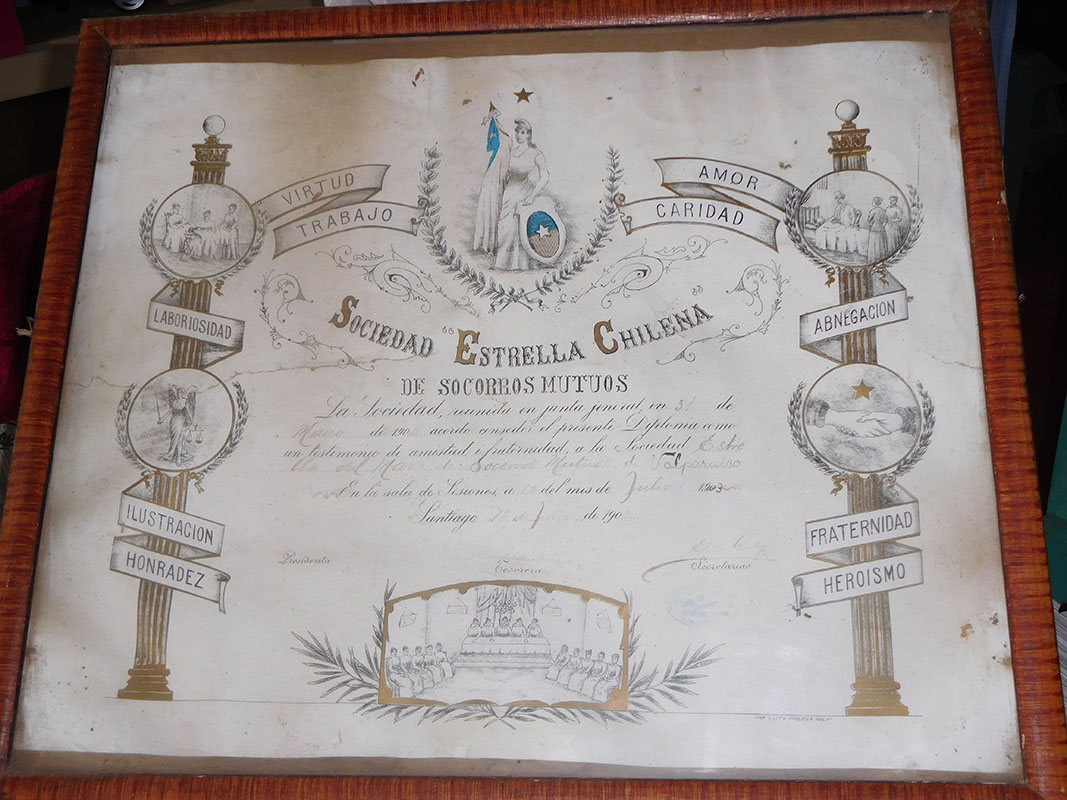 VIRTUD
TRABAJO
AMOR
CARIDAD
LABORIOSIDAD
ABNEGACION
SOCIEDAD "ESTRELLA CHILENA"
DE SOCORROS MUTUOS
La Sociedad, reunida en junta jeneral, en 31 de
de 190 acordó conceder el presente Diploma como
un testimonio de amistad i fraternidad, a la Sociedad Estre
lla del Mar de Socorros Mutuos de Valparaiso
En la sala de Sesiones, a 12 del mes de Julio 1903
Santiago de de 190
ILUSTRACION
HONRADEZ
FRATERNIDAD
HEROISMO
Presidenta
Tesorera
Secretarias